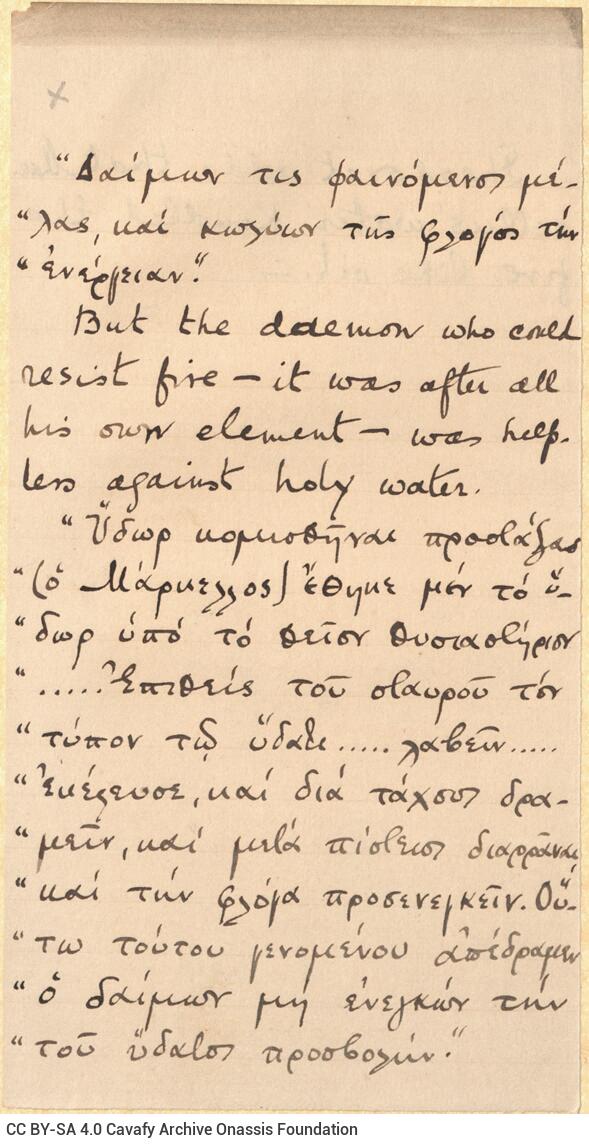 x
"Δαίμων τις φαινόμενος μέ-
"λας, καί κωλύων τῆς φλογός τήν
"ἐνέργειαν."
But the daemon who could
resist fire — it was after all
his own element — was help-
less against holy water.
"Ὕδωρ κομισθῆναι προστάξας
"(ὁ Μάρκελλος) ἔθηκε μέν τό ὕ-
"δωρ ὑπό τό θεῖον θυσιαστήριον
".....Ἐπιθείς τοῦ σταυροῦ τόν
"τύπον τῷ ὕδατι ..... λαβεῖν.....
"ἐκέλευσε, καί διά τάχους δρα-
"μεῖν, καί μετά πίστεως διαρρᾶναι,
"καί τήν φλόγα προσενεγκεῖν. Οὕ-
"τω τούτου γενομένου ἀπέδραμεν
"ὁ δαίμων μή ἐνεγκών τήν
"τοῦ ὕδατος προσβολήν."
CC BY-SA 4.0 Cavafy Archive Onassis Foundation